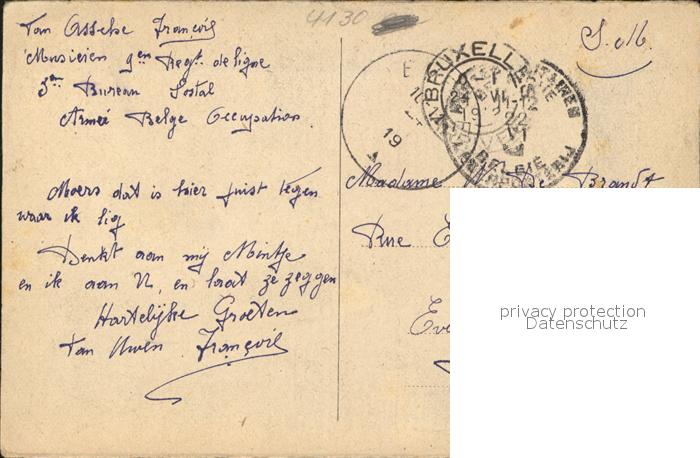 Van Assche François
Musicien 9en Regt. de ligne
5en Bureau Postal
Armée Belge Occupation
Moers dat is hier juist tegen
waar ik lig
Denkt aan mij Mintje
en ik aan U, en laat ze zeggen
Hartelijke Groeten
Van Uwen François
4130
S. M.
BRUXELL
22
19
BELGIE
Madame De Brandt
Rue E
Eve
privacy protection
Datenschutz